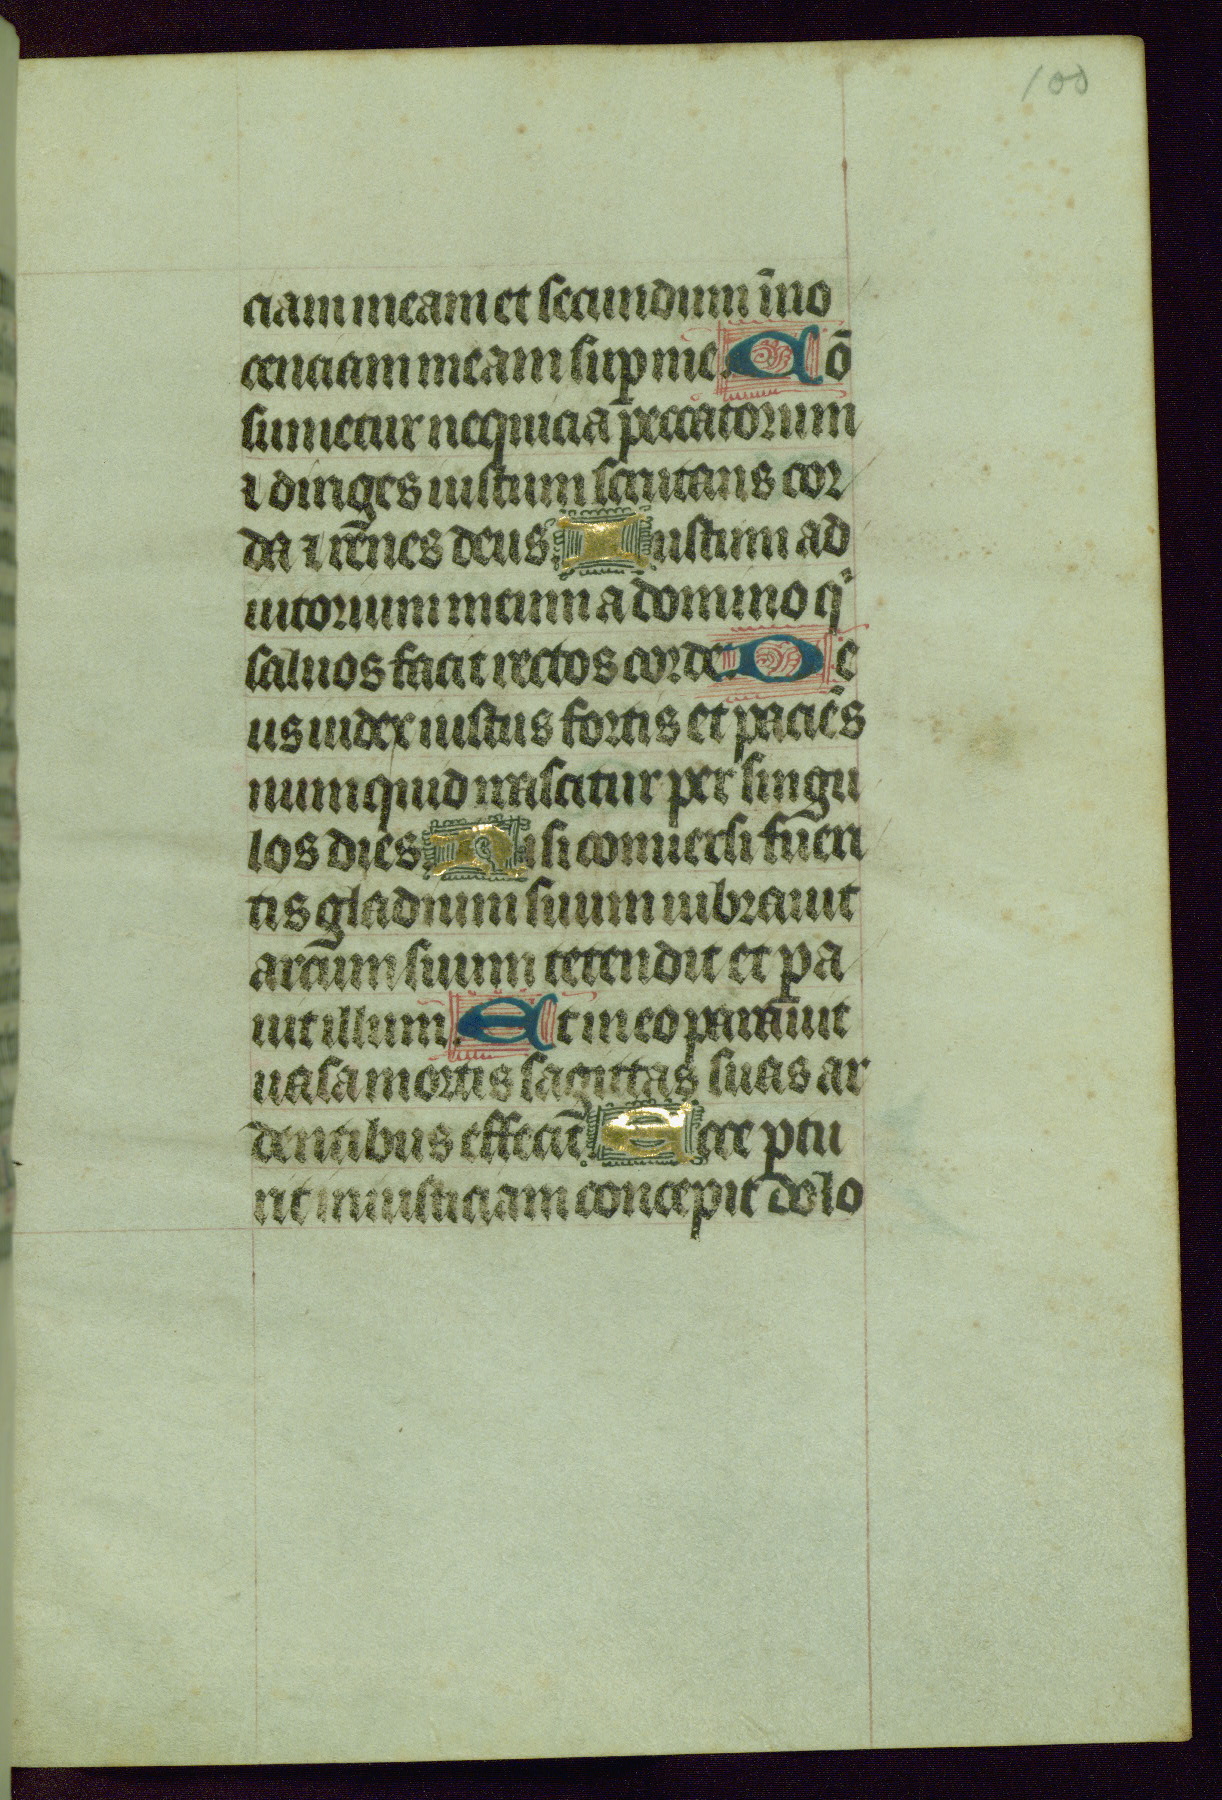 100
ciam meam et secundum īno
cenciam meam sup me. Cō
sumetur nequicia peccatorum
⁊ diriges iustum scrutans cor
da ⁊ rēnes deus. Iustum ad
iutorium meum a domino qⁱ
saluos facit rectos corde. De
us iudex iustus fortis et paciēs
numquid irascitur per singu
los dies. Nisi conuersi fueri
tis gladium suum uibrauit
arcum suum tetendit et pa
uit illum. Et in eo parauit
uasa mortis sagittas suas ar
dentibus effecit. Ecce ptu
rit iniusticiam concepit dolo